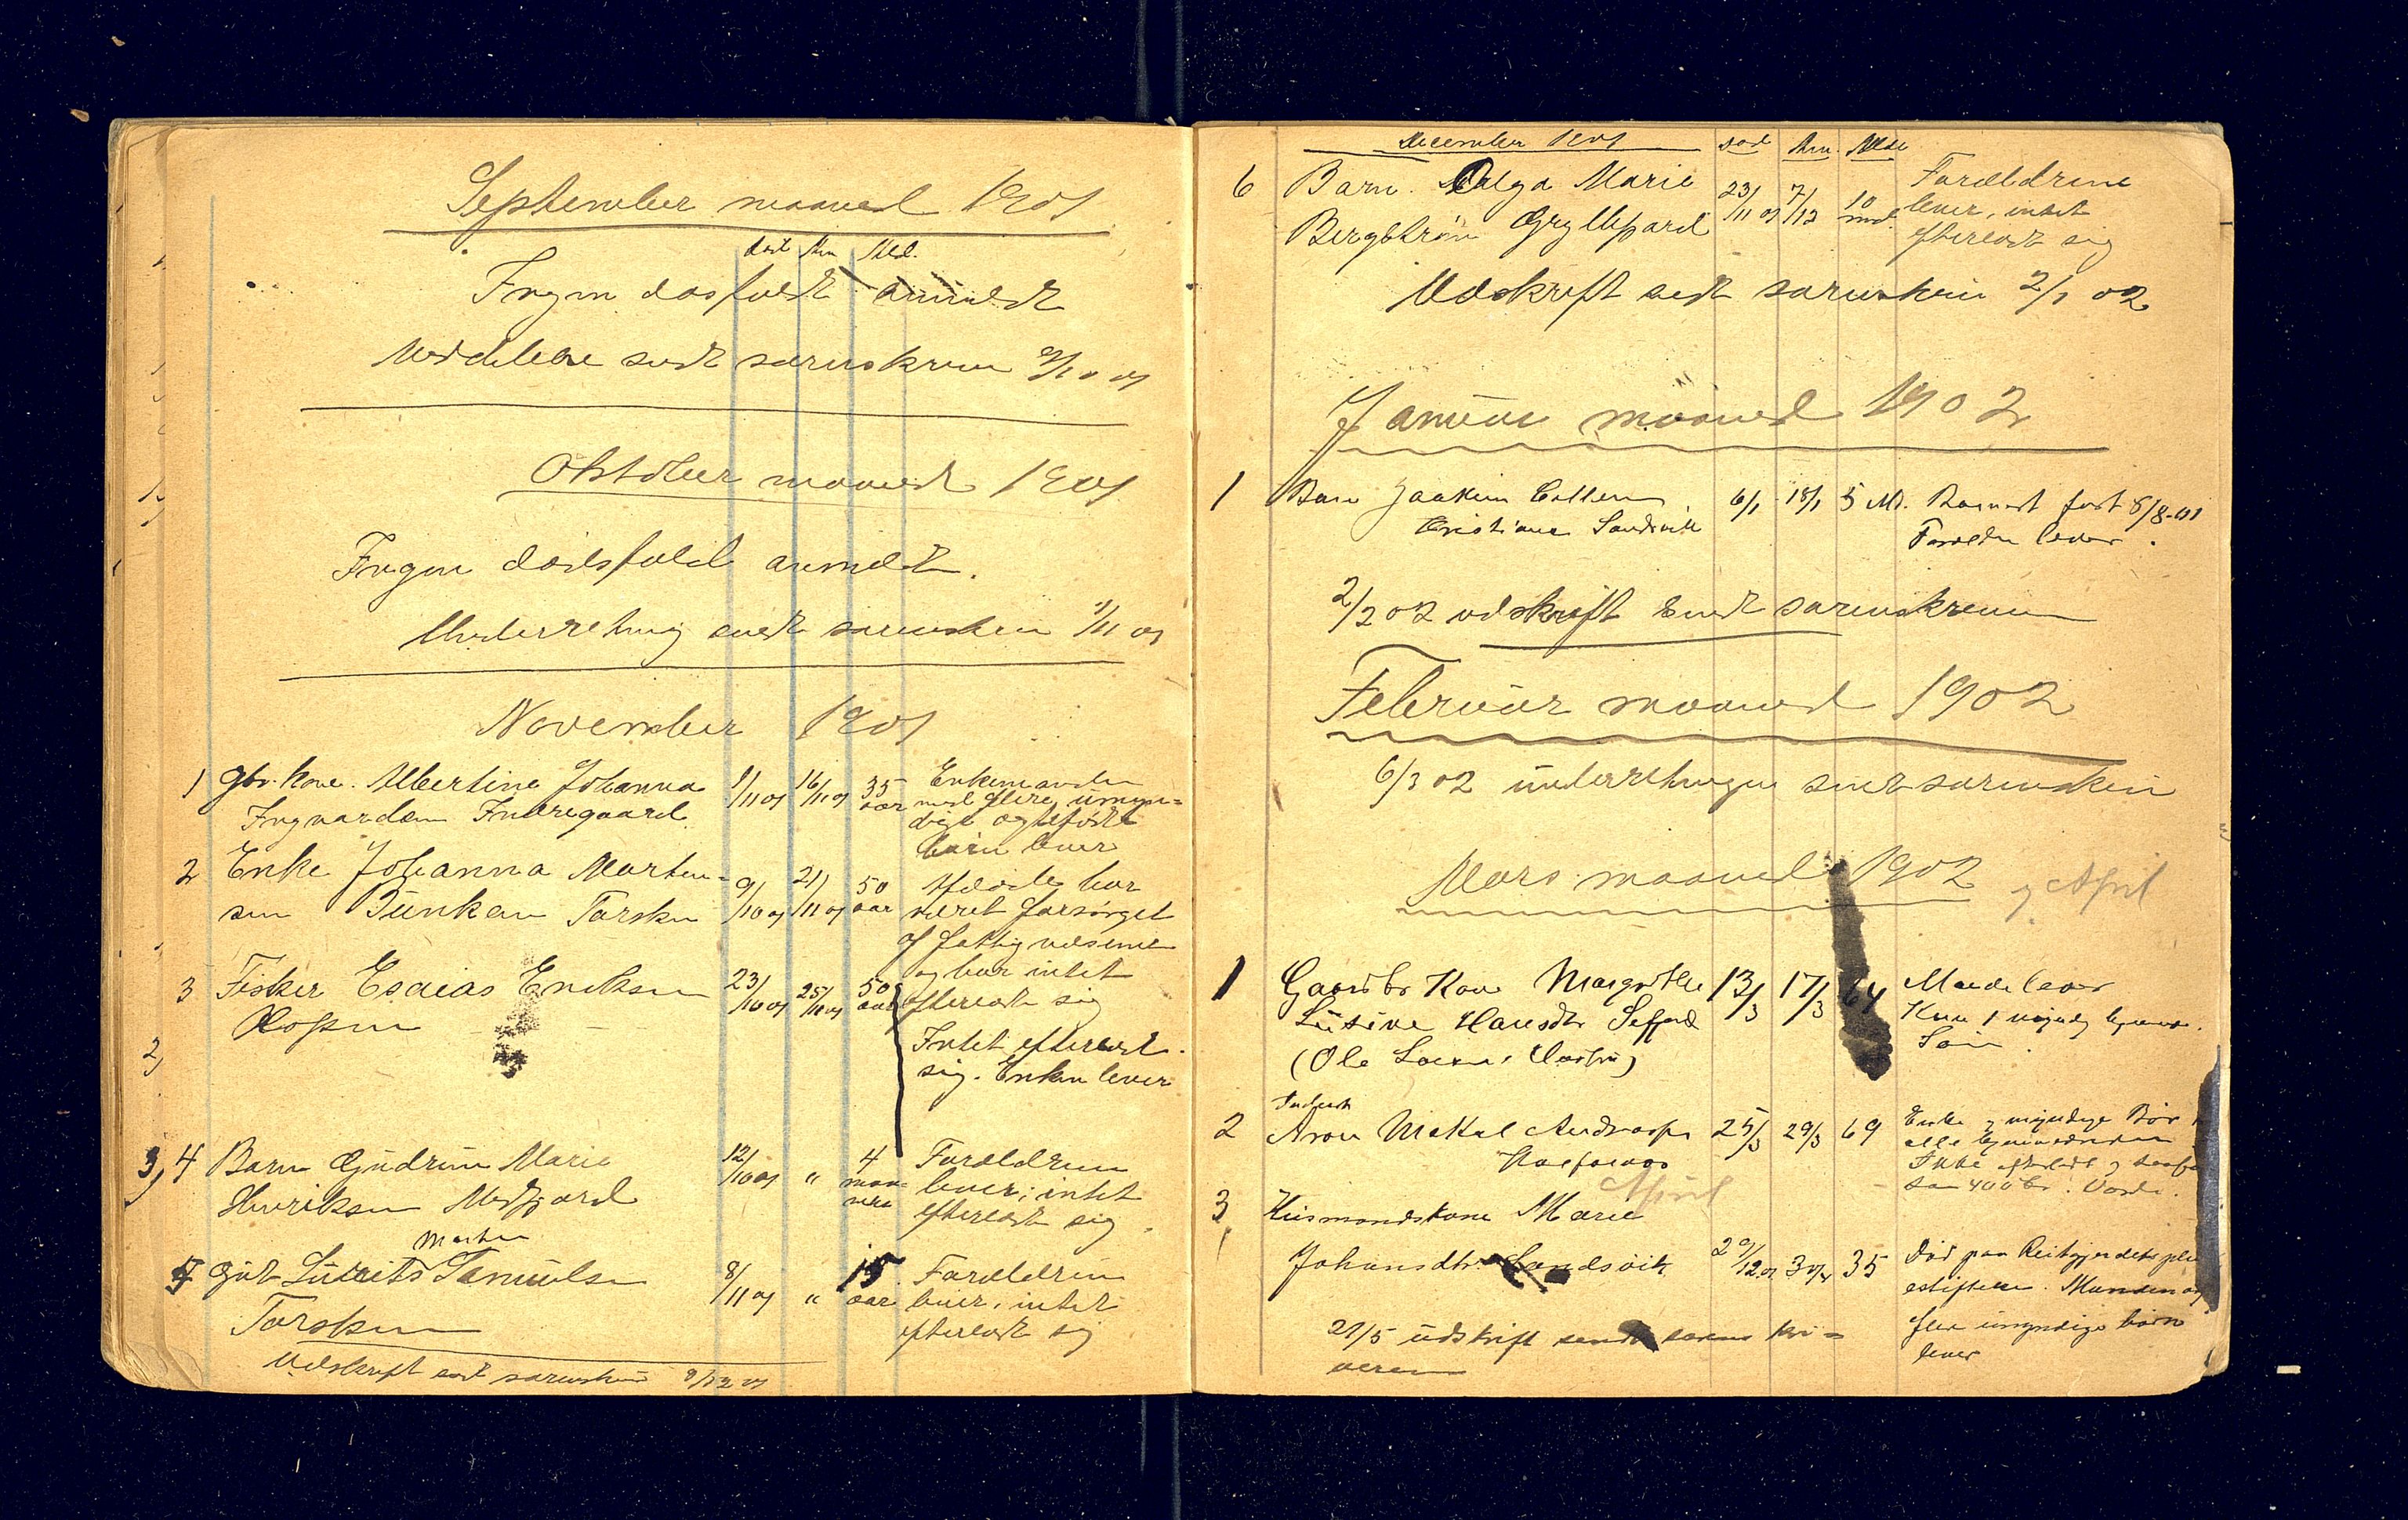 September maaned 1901
død Anm Ald.
Ingen dødsfald anmeldt
Meddelelse sendt sorenskrivm 9/10 01
Oktober maaned 1901
Ingen dødsfald anmeldt.
Underretning sendt sorenskriv 1/11 01
November 1901
1 Gbr. Kone. Albertine Johanna 9/11 01 16/11 01 35 aar Enkemanden
Ingvardsen Indregaard med flere umyn=
dige ægtefødte
børn lever
2 Enke Johanna Morten= 9/10 01 21/11 01 50 aar Afdøde har
sen Tunkan Torsken været forsørget
af fattigvæsenet
og har intet
efterladt sig
3 Fisker Esaias Eriksen 23/10 01 25/10 01 50 aar
Intet efterladt
sig. Enken lever
4 Barn Gudrun Marie 12/10 01 " 4 maa= neder Forældrene
Henriksen Medfjord lever; intet
efterladt sig.
Morten
5 Gut Laurits Samuelsen 8/11 01 " 15 aar Forældrene
Torsken lever, intet
efterladt sig
Udskrift sendt sorenskriv 9/12 01
December 1901 død Anm. Alder
6 Barn. Olga Marie 23/11 01 7/12 10 md. Forældrene
Bergström Gryllefjord lever, intet
efterladt sig
Udskrift sendt sorenskriv 2/1 02
Januar maaned 1902
1 Barn Joakim Edlem 6/1 18/1 5 Md. Barnet født 8/8-01
Kristiane Sandvik Foreldr lever.
2/2 02 udskrift sendt sorenskriveren
Februar maaned 1902
6/3 02 underretningen sendt sorenskriv
Mars maaned 1902 og April
1 Gaardbr Kone Margrethe 13/3 17/3 64 Manden lever
Hansdtr Kun 1 myndig
(Ole Søn
2 Aron Mikal 25/3 29/3 69 Enke og myndige Børn
alle
Kaldfarnes Ikke efterladt
400 Kr.
April
3 Husmandskone Marie
Johansdtr. Sandsvik 29/12 01 3/4 35 Død paa Reitgjerdets plei
estiftelse. Manden og
flere umyndige børn
lever
21/5 udskrift sendt sorenskri=
veren